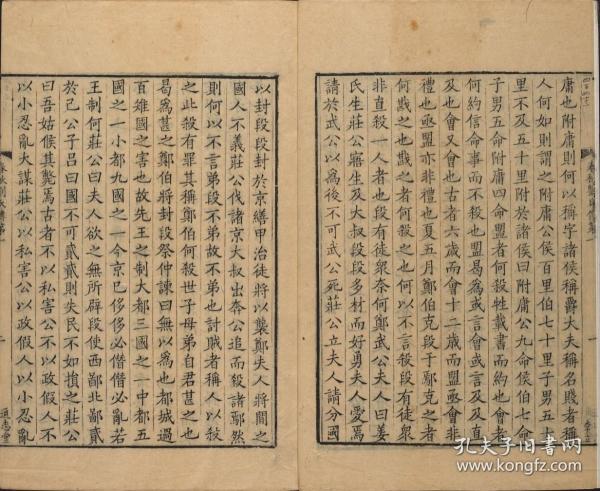 庸也附庸則何以稱字諸侯稱爵大夫稱名賤者稱
人何如則謂之附庸公侯百里伯七十里子男五十
里不及五十里附於諸侯曰附庸公九命侯伯七命
子男五命附庸四命盟者何殺牲載書而約也會者
何約信命事而不殺也盟曷為或言會或言及及直
及也會又會也古者六歲而會十二歲而盟亟會非
禮也亟盟亦非禮也夏五月鄭伯克段于鄢克之者
何戕之也戕之者何殺之也何以不言殺段有徒衆
非直殺一人者也段有徒衆奈何鄭武公夫人曰姜
氏生莊公寤生及大叔段段多材而好勇夫人愛焉
請於武公以為後不可武公死莊公立夫人請分國
以封段段封於京繕甲治徒將以襲鄭夫人將間之
國人不義莊公伐諸京大叔出奔公追而殺諸鄢然
則何以不言弟段不弟故不弟也討賊者稱人以殺
之此殺有罪其稱鄭伯何殺世子母弟自君甚之也
曷為甚之鄭伯將封段祭仲諫曰無以為也都城過
百雉國之害也故先王之制大都三國之一中都五
國之一小都九國之一今京已侈侈必僭僭必亂若
王制何莊公曰夫人欲之無所辟段使西鄙北鄙貳
於己公子呂曰國不可貳貳則失民不如損之莊公
曰吾姑俟其斃焉古者不以私害公不以政假人不
以小忍亂大謀莊公以私害公以政假人以小忍亂
通志堂
孔夫子旧书网
www.kongfz.com